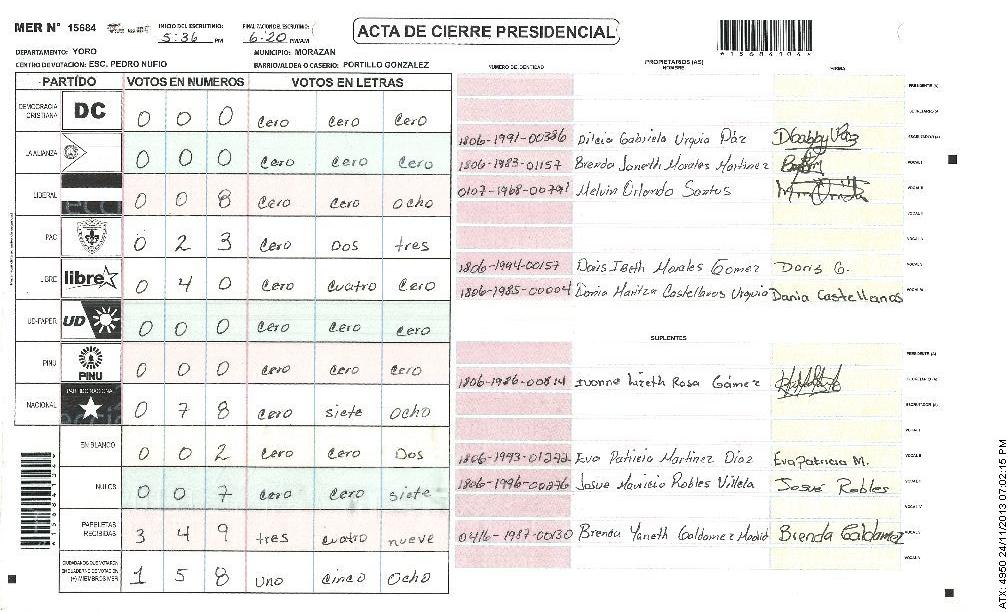 MER N° 15684
INICIO DEL ESCRUTINIO: 5:36 PM
FINALIZACION DEL ESCRUTINIO: 6:20 PM/AM
ACTA DE CIERRE PRESIDENCIAL
DEPARTAMENTO: YORO
MUNICIPIO: MORAZAN
CENTRO DE VOTACION: ESC. PEDRO NUFIO
BARRIO/ALDEA O CASERIO: PORTILLO GONZALEZ
PARTÍDO VOTOS EN NUMEROS VOTOS EN LETRAS
DEMOCRACIA CRISTIANA DC 0 0 0 cero cero cero
LA ALIANZA 0 0 0 cero cero cero
LIBERAL 0 0 8 cero cero ocho
PAC 0 2 3 cero Dos tres
LIBRE libre 0 4 0 cero cuatro cero
UD-FAPER UD 0 0 0 cero cero cero
PINU PINU 0 0 0 cero cero cero
NACIONAL PARTIDO NACIONAL 0 7 8 cero siete ocho
EN BLANCO 0 0 2 cero cero Dos
NULOS 0 0 7 cero cero siete
PAPELETAS RECIBIDAS 3 4 9 tres cuatro nueve
CIUDADANOS QUE VOTARON EN CUADERNO DE VOTACION (+) MIEMBROS MER 1 5 8 uno cinco ocho
NUMERO DE IDENTIDAD PROPIETARIOS (AS) NOMBRE FIRMA
PRESIDENTE (A)
SECRETARIO (A)
1806-1991-00386 Dilcia Gabriela Urquia Páz ESCRUTADOR (A)
1806-1983-01157 Brenda Janeth Morales Martinez VOCAL I
0107-1968-00791 Melvin Orlando Santos VOCAL II
VOCAL III
VOCAL IV
1806-1994-00157 Doris Ibeth Morales Gomez Doris G. VOCAL V
1806-1985-00004 Dania Maritza Castellanos Urquia Dania Castellanos
SUPLENTES
PRESIDENTE (A)
1806-1986-00814 Ivonne Lizeth Rosa Gámez SECRETARIO (A)
ESCRUTADOR (A)
VOCAL I
1806-1993-01272 Eva Patricia Martinez Diaz Eva Patricia M. VOCAL II
1806-1996-00276 Josue Mauricio Robles Villela Josué Robles
VOCAL IV
0416-1987-00130 Brenda Yaneth Galdamez Madrid Brenda Galdamez
ATX: 4950 24/11/2013 07:02:15 PM